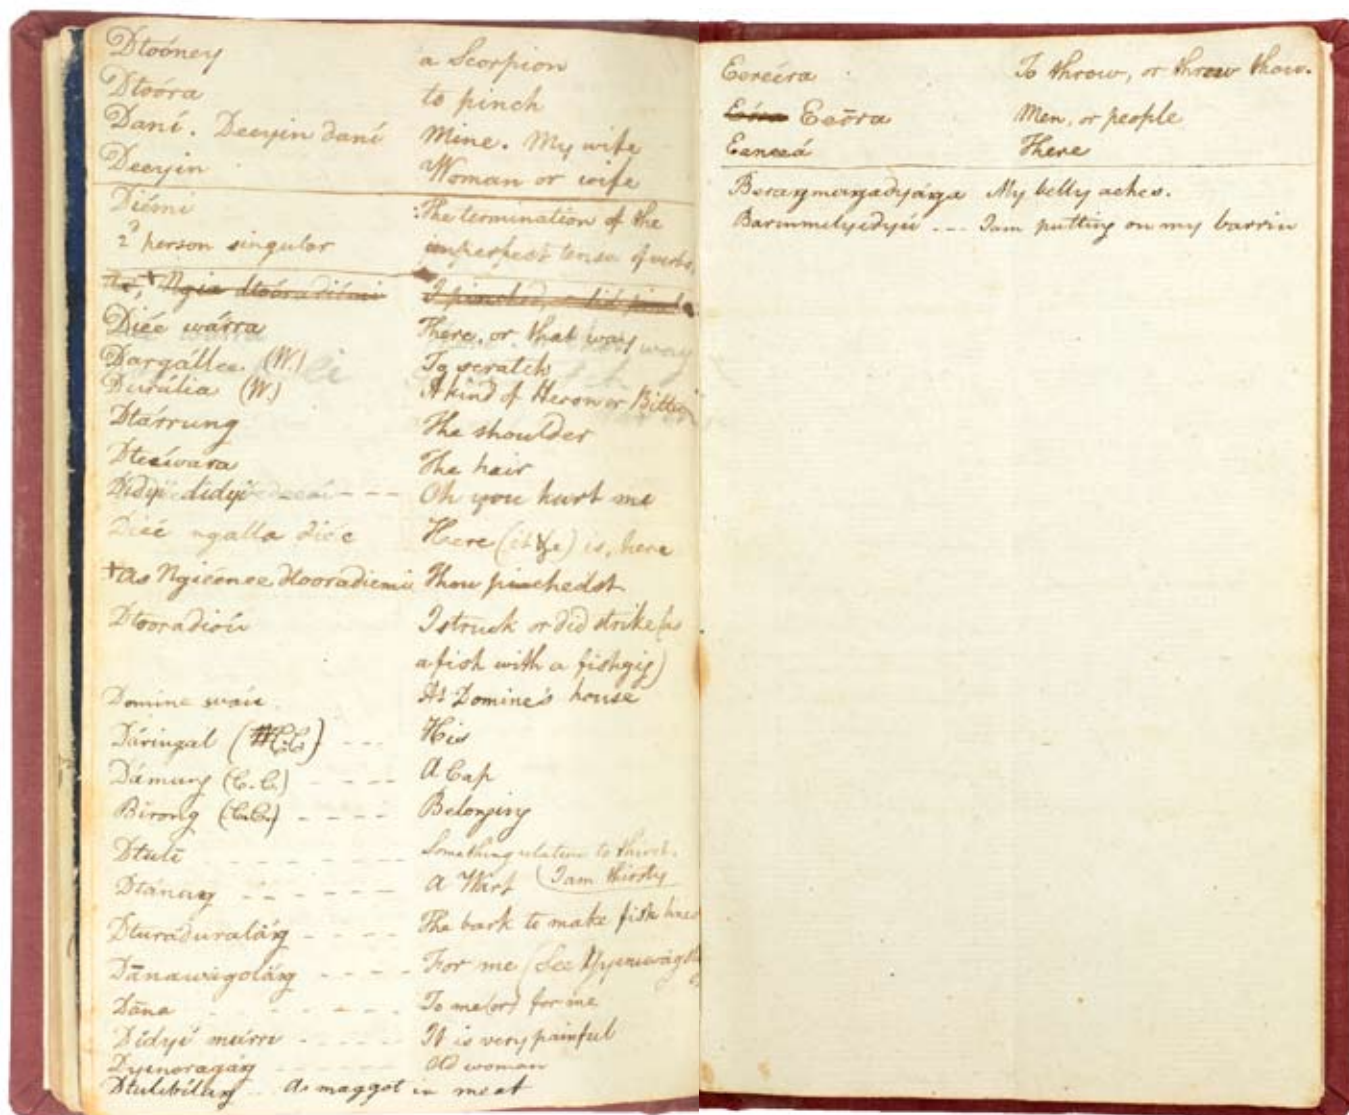 Dtoóney a Scorpion
Dtoóra to pinch
Daní. Deeyin daní Mine. My wife
Deeyin Woman or wife
Diémi :The termination of the
2d person singular imperfect tense of verbs.
I pinched, or did pinch
Dieé wárra There, or that way
Dargállee (W.) To scratch
Durália (W.) A kind of Heron or Bittern
Dtárrung The shoulder
Dteéwara The hair
Dídyi dídyi Oh you hurt me
Dieé ngalla dieé Here (it is) is, here
+As Ngieénee dtooradiemi Thou pinchedst
Dtooradioú I struck or did strike (as
a fish with a fishgig)
Domine waú At Domine's house
Dáringal (C.C.) - - - His
Dámuŋ (C.C.) - - - - A Cap
Birong (C.C.) - - - - Belonging
Dtuli - - - - - - Something relative to thirst.
Dtánuŋ - - - - - - A Wart (I am thirsty
Dturáduraláŋ - - - - The bark to make fish lines
Dānawágoláŋ - - - - For me (See
Dāna - - - - - - To me (or) for me
Dídyi múrre - - - - - It is very painful
Dyinoragáŋ - - - - - Old woman
Dtulibílaŋ - - A maggot in meat
Eereéra To throw, or throw thou.
Eeōra Men, or people
Eeneeá There
Beraŋmaŋadyáŋa My belly aches.
Barinmilyidyú - - - I am putting on my barrin